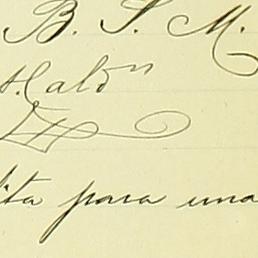 B. S. M.
A. Cald.on
ita para una